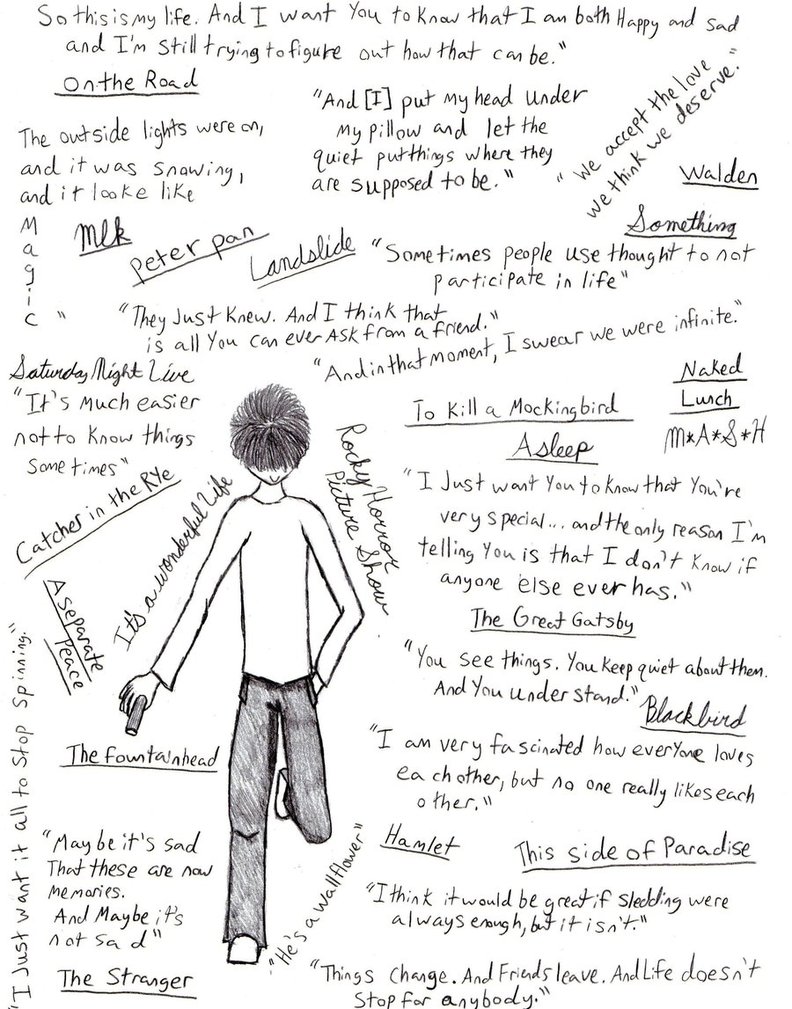 So this is my life. And I want You to know that I am both Happy and sad
and I'm still trying to figure out how that can be."
On the Road
"And [I] put my head under
my pillow and let the
quiet put things where they
are supposed to be."
"We accept the love
we think we deserve."
The outside lights were on,
and it was snowing,
and it looke like
Magic"
Walden
Mlk
Peter pan
Landslide
Something
"Sometimes people use thought to not
participate in life"
"They Just Knew. And I think that
is all You can ever ASK from a friend."
"And in that moment, I swear we were infinite."
Saturday Night Live
"It's much easier
not to know things
sometimes"
Naked
Lunch
M*A*S*H
To Kill a Mockingbird
Asleep
Catcher in the RYe
It's a wonderful Life
Rocky Horror
Picture Show
"I Just want You to know that You're
very special... and the only reason I'm
telling You is that I don't know if
anyone else ever has."
A separate
Peace
The Great Gatsby
"You see things. You keep quiet about them.
And You understand."
Blackbird
The fountainhead
"I am very fascinated how everyone loves
each other, but no one really likes each
other."
"I Just want it all to Stop Spinning."
"Maybe it's sad
That these are now
memories.
And Maybe it's
not sad"
Hamlet
This side of Paradise
"He's a wallflower"
"I think it would be great if sledding were
always enough, but it isn't."
The Stranger
"Things change. And Friends leave. And Life doesn't
Stop for anybody."